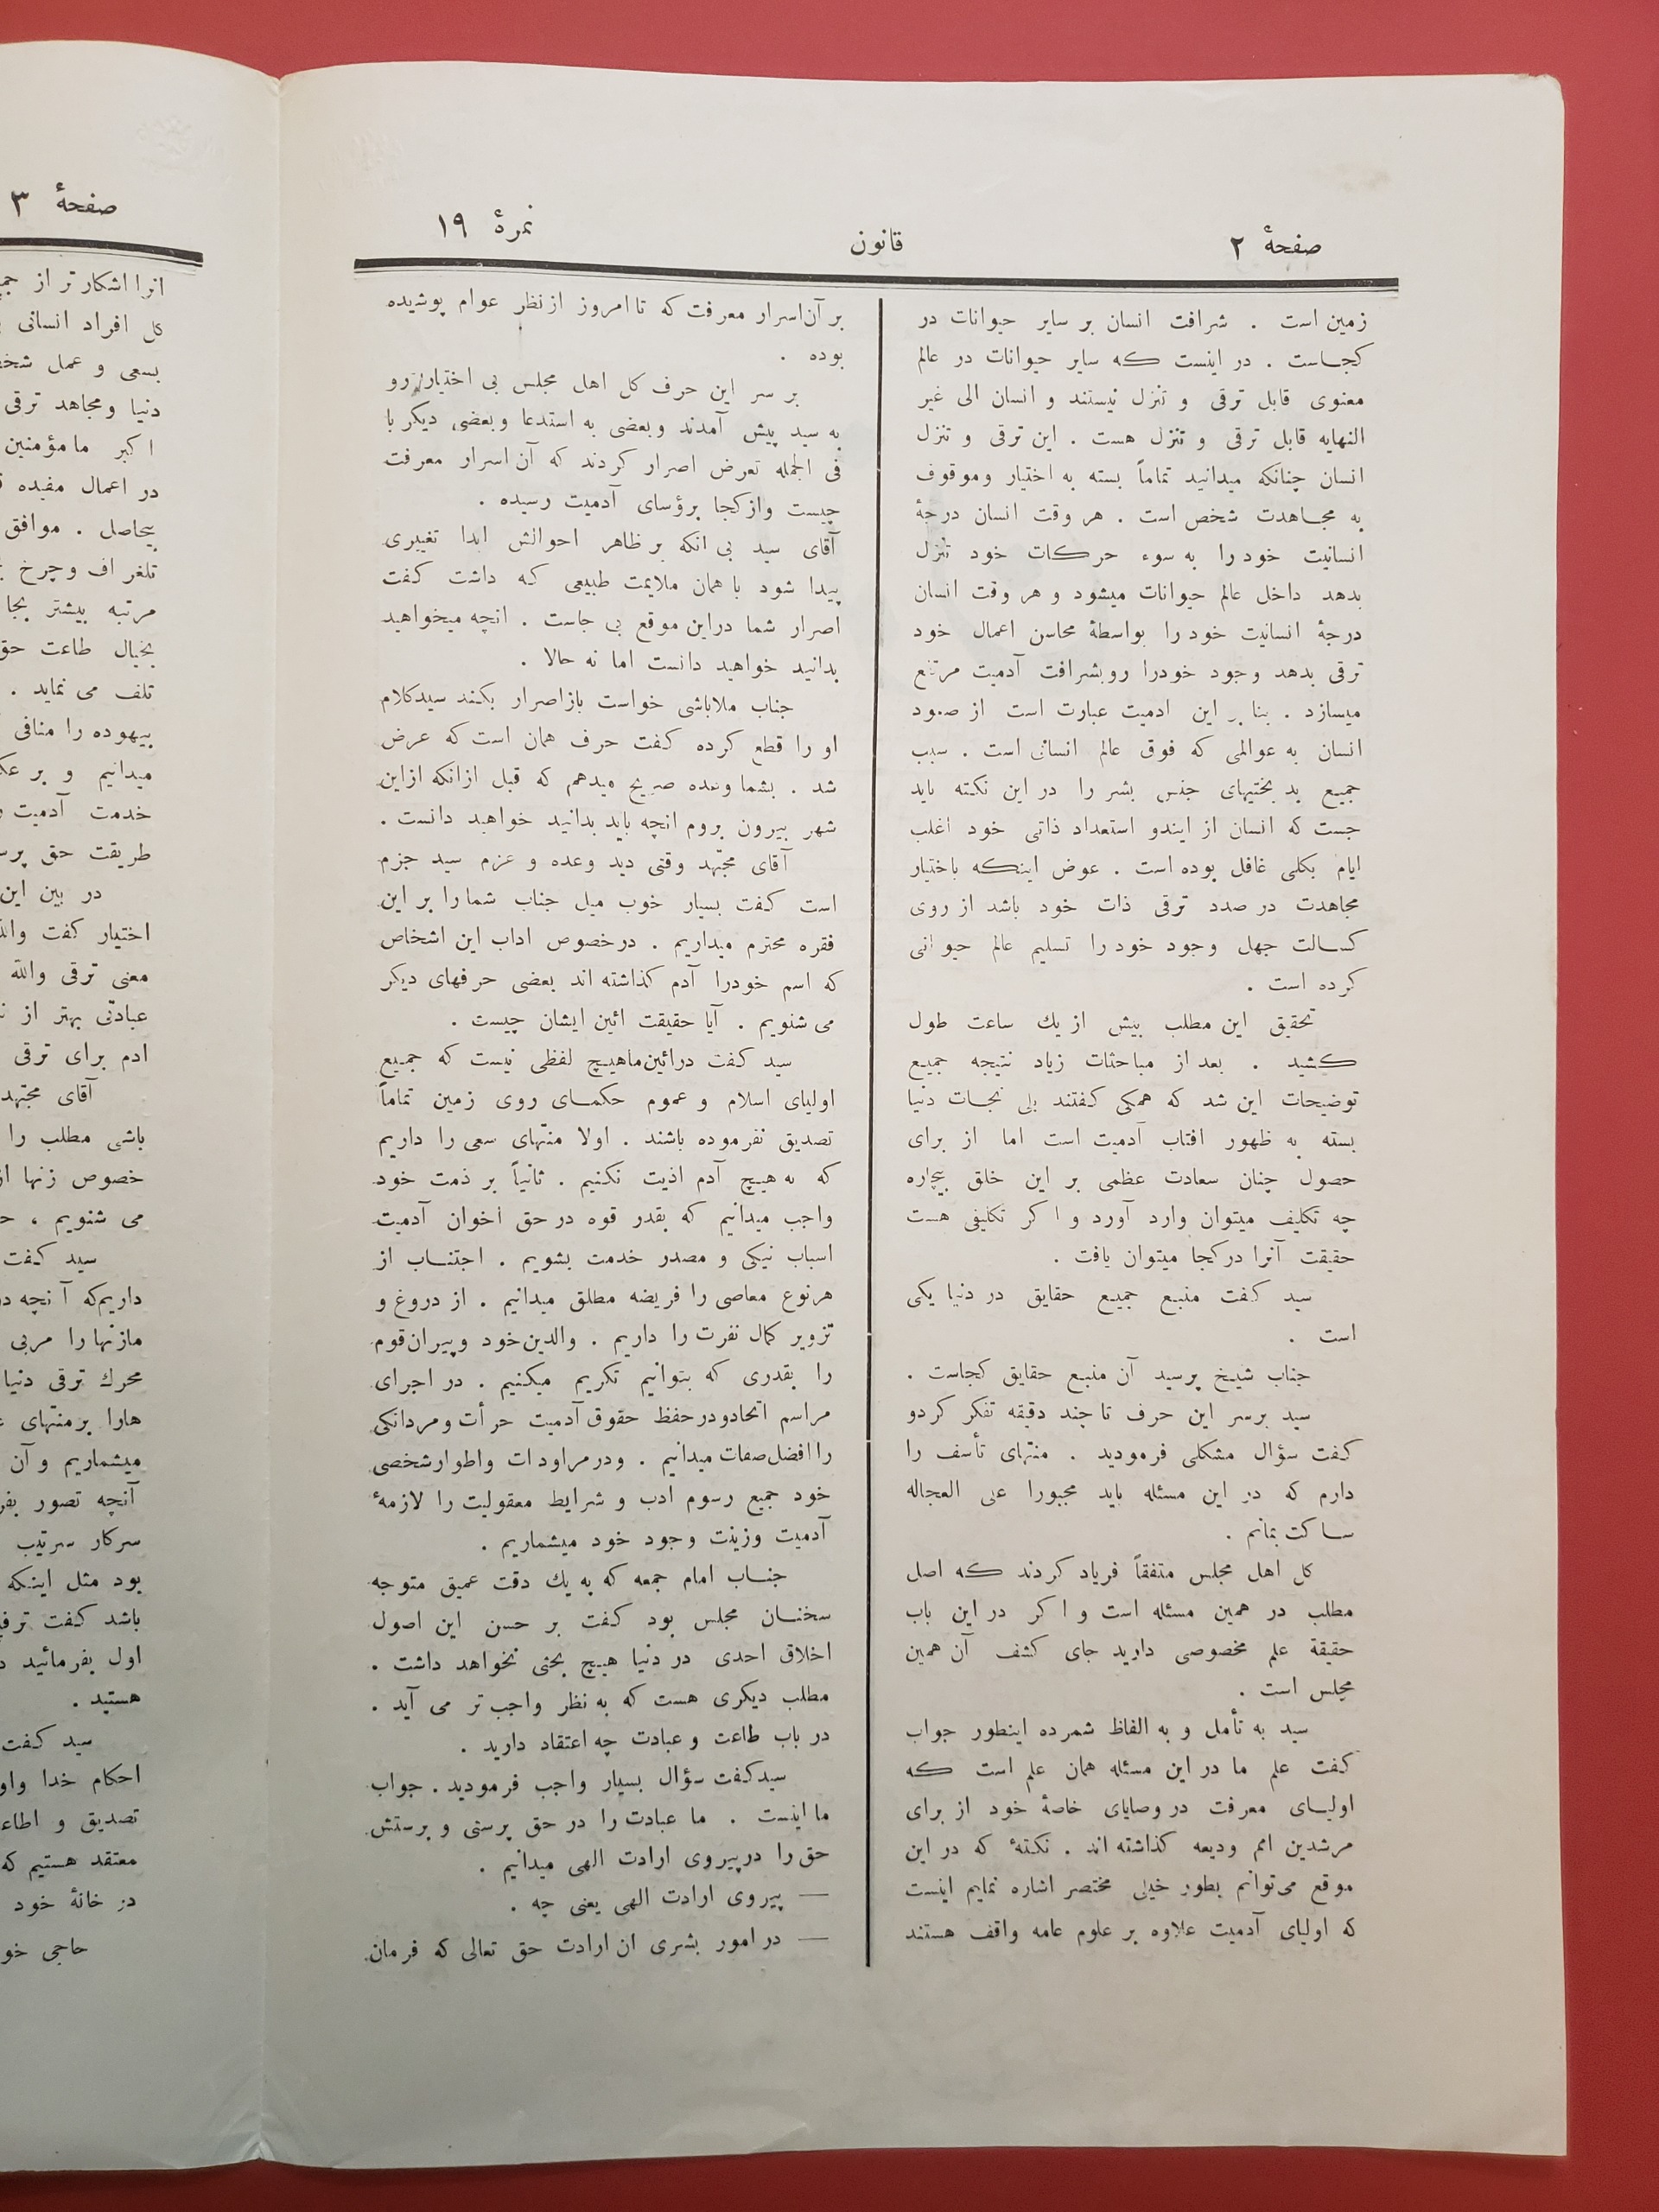 صفحهٔ ۲
قانون
نمرهٔ ۱۹
زمین است . شرافت انسان بر سایر حیوانات در
کجاست . در اینست که سایر حیوانات در عالم
معنوی قابل ترقی و تنزل نیستند و انسان الی غیر
النهایه قابل ترقی و تنزل هست . این ترقی و تنزل
انسان چنانکه میدانید تماماً بسته به اختیار وموقوف
به مجاهدت شخص است . هر وقت انسان درجهٔ
انسانیت خود را به سوء حرکات خود تنزل
بدهد داخل عالم حیوانات میشود و هر وقت انسان
درجهٔ انسانیت خود را بواسطهٔ محاسن اعمال خود
ترقی بدهد وجود خودرا روبشرافت آدمیت مرتفع
میسازد . بنا بر این ادمیت عبارت است از صعود
انسان به عوالمی که فوق عالم انسانی است . سبب
جمیع بدبختیهای جنس بشر را در این نکته باید
جست که انسان از ایندو استعداد ذاتی خود اغلب
ایام بکلی غافل بوده است . عوض اینکه باختیار
مجاهدت در صدد ترقی ذات خود باشد از روی
کسالت جهل وجود خود را تسلیم عالم حیوانی
کرده است .
تحقیق این مطلب بیش از یك ساعت طول
کشید . بعد از مباحثات زیاد نتیجه جمیع
توضیحات این شد که همکی کفتند بلی نجات دنیا
بسته به ظهور افتاب آدمیت است اما از برای
حصول چنان سعادت عظمی بر این خلق بیچاره
چه تکلیف میتوان وارد آورد و اکر تکلیفی هست
حقیقت آنرا درکجا میتوان یافت .
سید کفت منبع جمیع حقایق در دنیا یکی
است .
جناب شیخ پرسید آن منبع حقایق کجاست .
سید برسر این حرف تا جند دقیقه تفکر کردو
کفت سؤال مشکلی فرمودید . منتهای تأسف را
دارم که در این مسئله باید مجبورا علی العجاله
ساکت بمانم .
کل اهل مجلس متفقاً فریاد کردند که اصل
مطلب در همین مسئله است و اکر در این باب
حقیقة علم مخصوصی دارید جای کشف آن همین
مجلس است .
سید به تأمل و به الفاظ شمرده اینطور جواب
کفت علم ما در این مسئله همان علم است که
اولیای معرفت در وصایای خاصهٔ خود از برای
مرشدین امم ودیعه کذاشته اند . نکتهٔ که در این
موقع می‌توانم بطور خیلی مختصر اشاره نمایم اینست
که اولیای آدمیت علاوه بر علوم عامه واقف هستند
بر آن‌اسرار معرفت که تا امروز از نظر عوام پوشیده
بوده .
بر سر این حرف کل اهل مجلس بی اختیار رو
به سید پیش آمدند وبعضی به استدعا وبعضی دیکر با
فی الجمله تعرض اصرار کردند که آن اسرار معرفت
چیست وازکجا برؤسای آدمیت رسیده .
آقای سید بی انکه بر ظاهر احوالش ابدا تغییری
پیدا شود با همان ملایمت طبیعی که داشت کفت
اصرار شما دراین موقع بی جاست . انچه میخواهید
بدانید خواهید دانست اما نه حالا .
جناب ملاباشی خواست بازاصرار بکند سیدکلام
او را قطع کرده کفت حرف همان است که عرض
شد . بشما وعده صریح میدهم که قبل ازانکه ازاین
شهر بیرون بروم انچه باید بدانید خواهید دانست .
آقای مجتهد وقتی دید وعده و عزم سید جزم
است کفت بسیار خوب میل جناب شمارا بر این
فقره محترم میداریم . درخصوص اداب این اشخاص
که اسم خودرا آدم کذاشته اند بعضی حرفهای دیکر
می شنویم . آیا حقیقت ائین ایشان چیست .
سید کفت درائین‌ماهیچ لفظی نیست که جمیع
اولیای اسلام و عموم حکمای روی زمین تماماً
تصدیق نفرموده باشند . اولا منتهای سعی را داریم
که به هیچ آدم اذیت نکنیم . ثانیاً بر ذمت خود
واجب میدانیم که بقدر قوه در حق اخوان آدمیت
اسباب نیکی و مصدر خدمت بشویم . اجتناب از
هرنوع معاصی را فریضه مطلق میدانیم . از دروغ و
تزویر کمال نفرت را داریم . والدین‌خود وپیران‌قوم
را بقدری که بتوانیم تکریم میکنیم . در اجرای
مراسم اتحادودرحفظ حقوق آدمیت جرأت ومردانکی
را افضل‌صفات میدانیم . ودرمراودات واطوارشخصی
خود جمیع رسوم ادب و شرایط معقولیت را لازمهٔ
آدمیت وزینت وجود خود میشماریم .
جناب امام جمعه که به یك دقت عمیق متوجه
سخنان مجلس بود کفت بر حسن این اصول
اخلاق احدی در دنیا هیچ بحثی نخواهد داشت .
مطلب دیکری هست که به نظر واجب تر می آید .
در باب طاعت و عبادت چه اعتقاد دارید .
سیدکفت سؤال بسیار واجب فرمودید . جواب
ما اینست . ما عبادت را در حق پرستی و پرستش
حق را درپیروی ارادت الهی میدانیم .
— پیروی ارادت الهی یعنی چه .
— در امور بشری ان ارادت حق تعالی که فرمان
صفحهٔ ۳
انرا اشکار تر از
کل افراد انسانی
بسعی و عمل
دنیا ومجاهد ترقی
اکبر مامؤمنین
در اعمال مفیده
بیحاصل . موافق
تلغراف وچرخ
مرتبه بیشتر بجا
بخیال طاعت حق
تلف می نماید .
بیهوده را منافی
میدانیم و بر
خدمت آدمیت
طریقت حق
در بین این
اختیار کفت
معنی ترقی والله
عبادتی بهتر از
ادم برای ترقی
آقای مجتهد
باشی مطلب را
خصوص زنها
می شنویم ،
سید کفت
داریم‌که آنچه
مازنها را مربی
محرك ترقی دنیا
هارا برمنتهای
میشماریم و آن
آنچه تصور
سرکار سرتیب
بود مثل اینکه
باشد کفت
اول بفرمائید
هستید .
سید کفت
احکام خدا
تصدیق و
معتقد هستیم که
در خانهٔ خود
حاجی